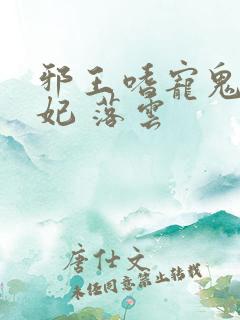 邪王嗜寵鬼
妃 落雲
唐仕文
未經同意禁止轉載